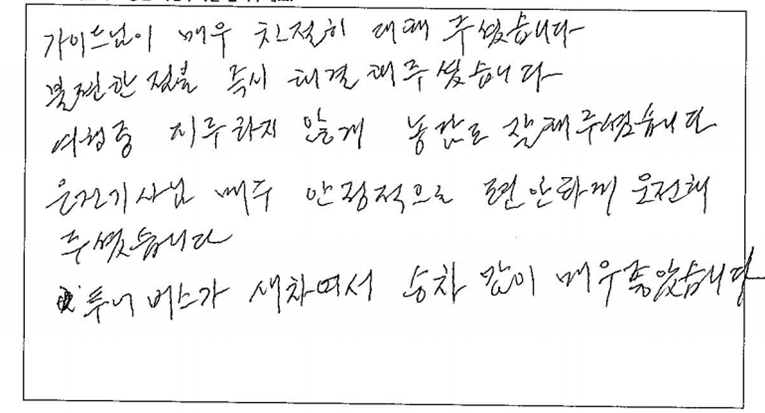 가이드님이 매우 친절히 대해 주셨습니다
불편한 점을 즉시 해결해 주셨습니다
여행중 지루하지 않게 농담도 잘해주셨습니다
운전기사님 매우 안정적으로 편안하게 운전해
주셨습니다
투어 버스가 새차여서 승차감이 매우 좋았습니다